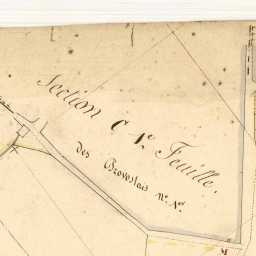 Section C 1e. Feuille.
des Brovostais No. 1er